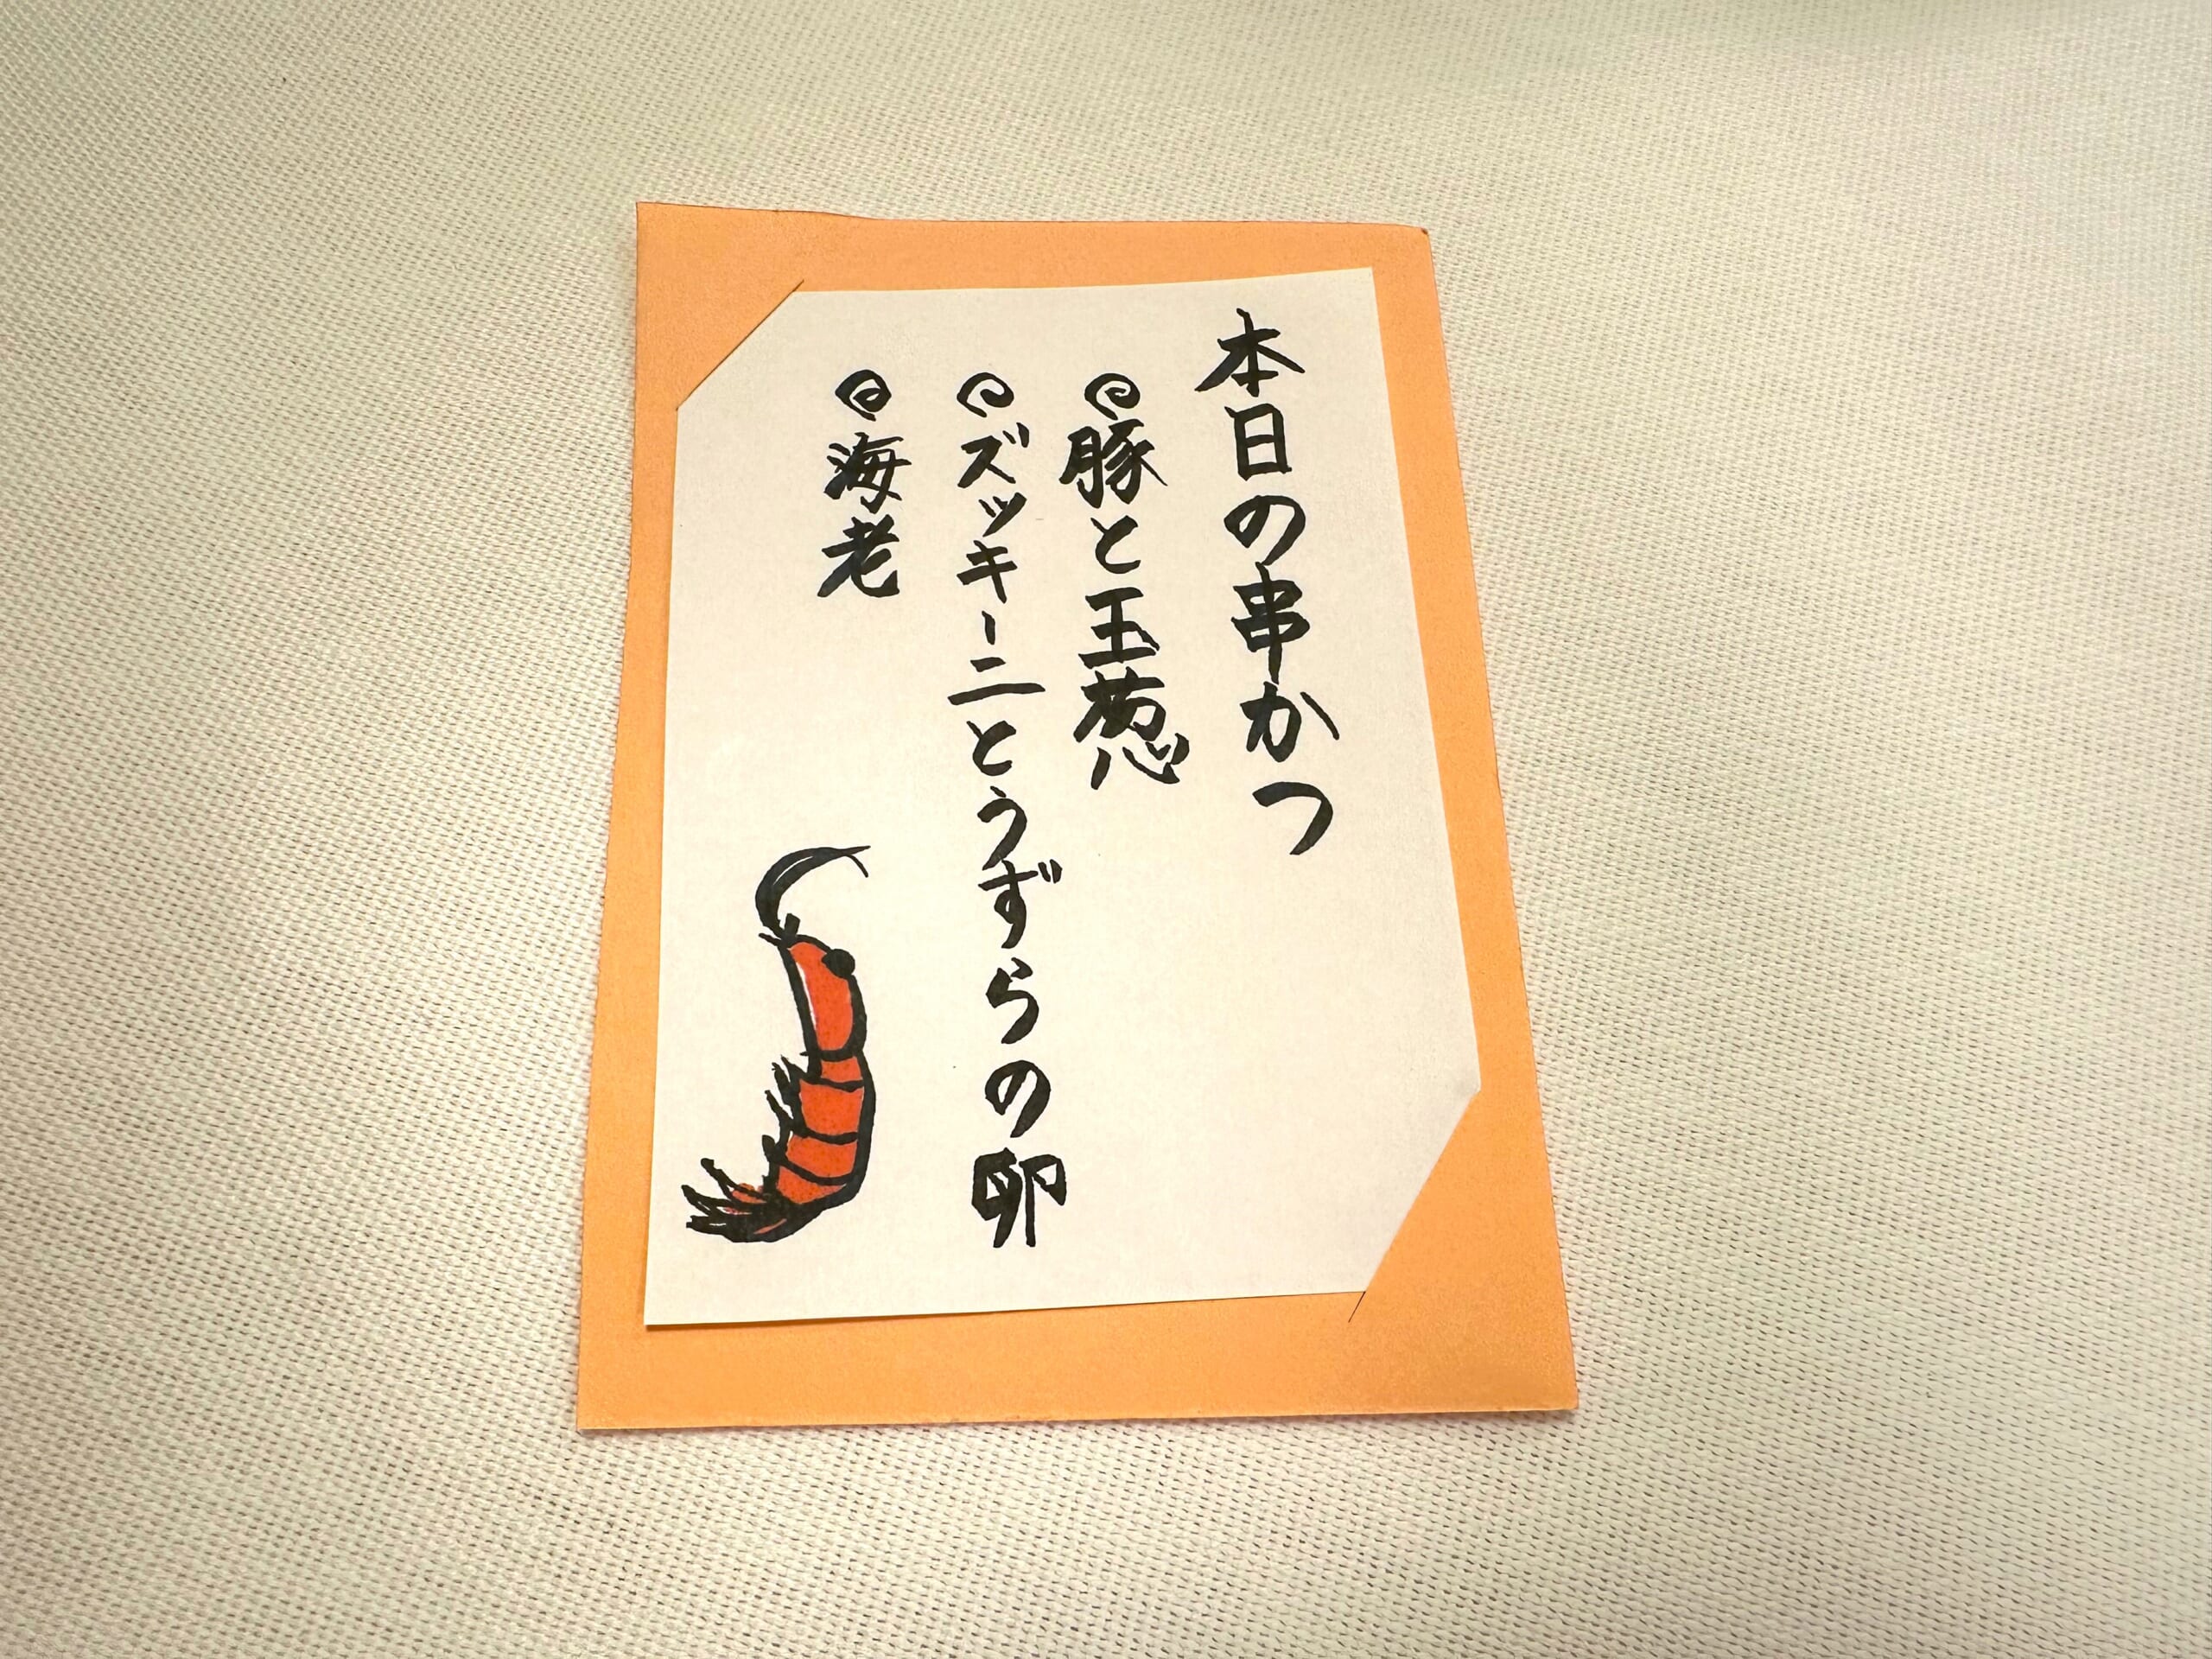 本日の串かつ
豚と玉葱
ズッキーニとうずらの卵
海老